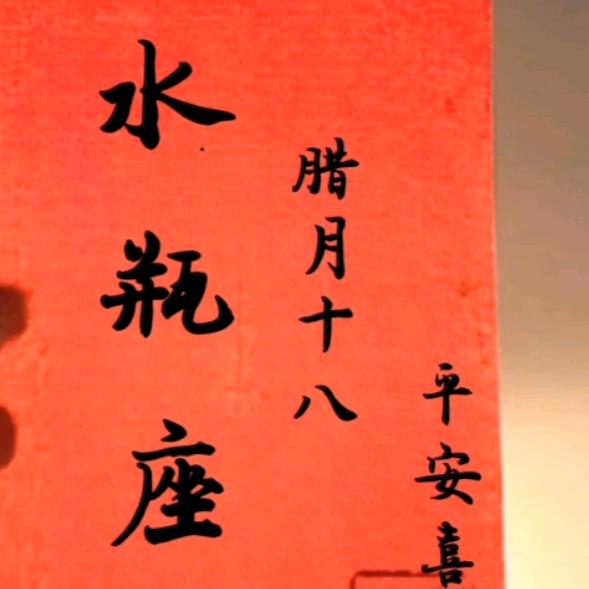 平安喜
腊月十八
水瓶座